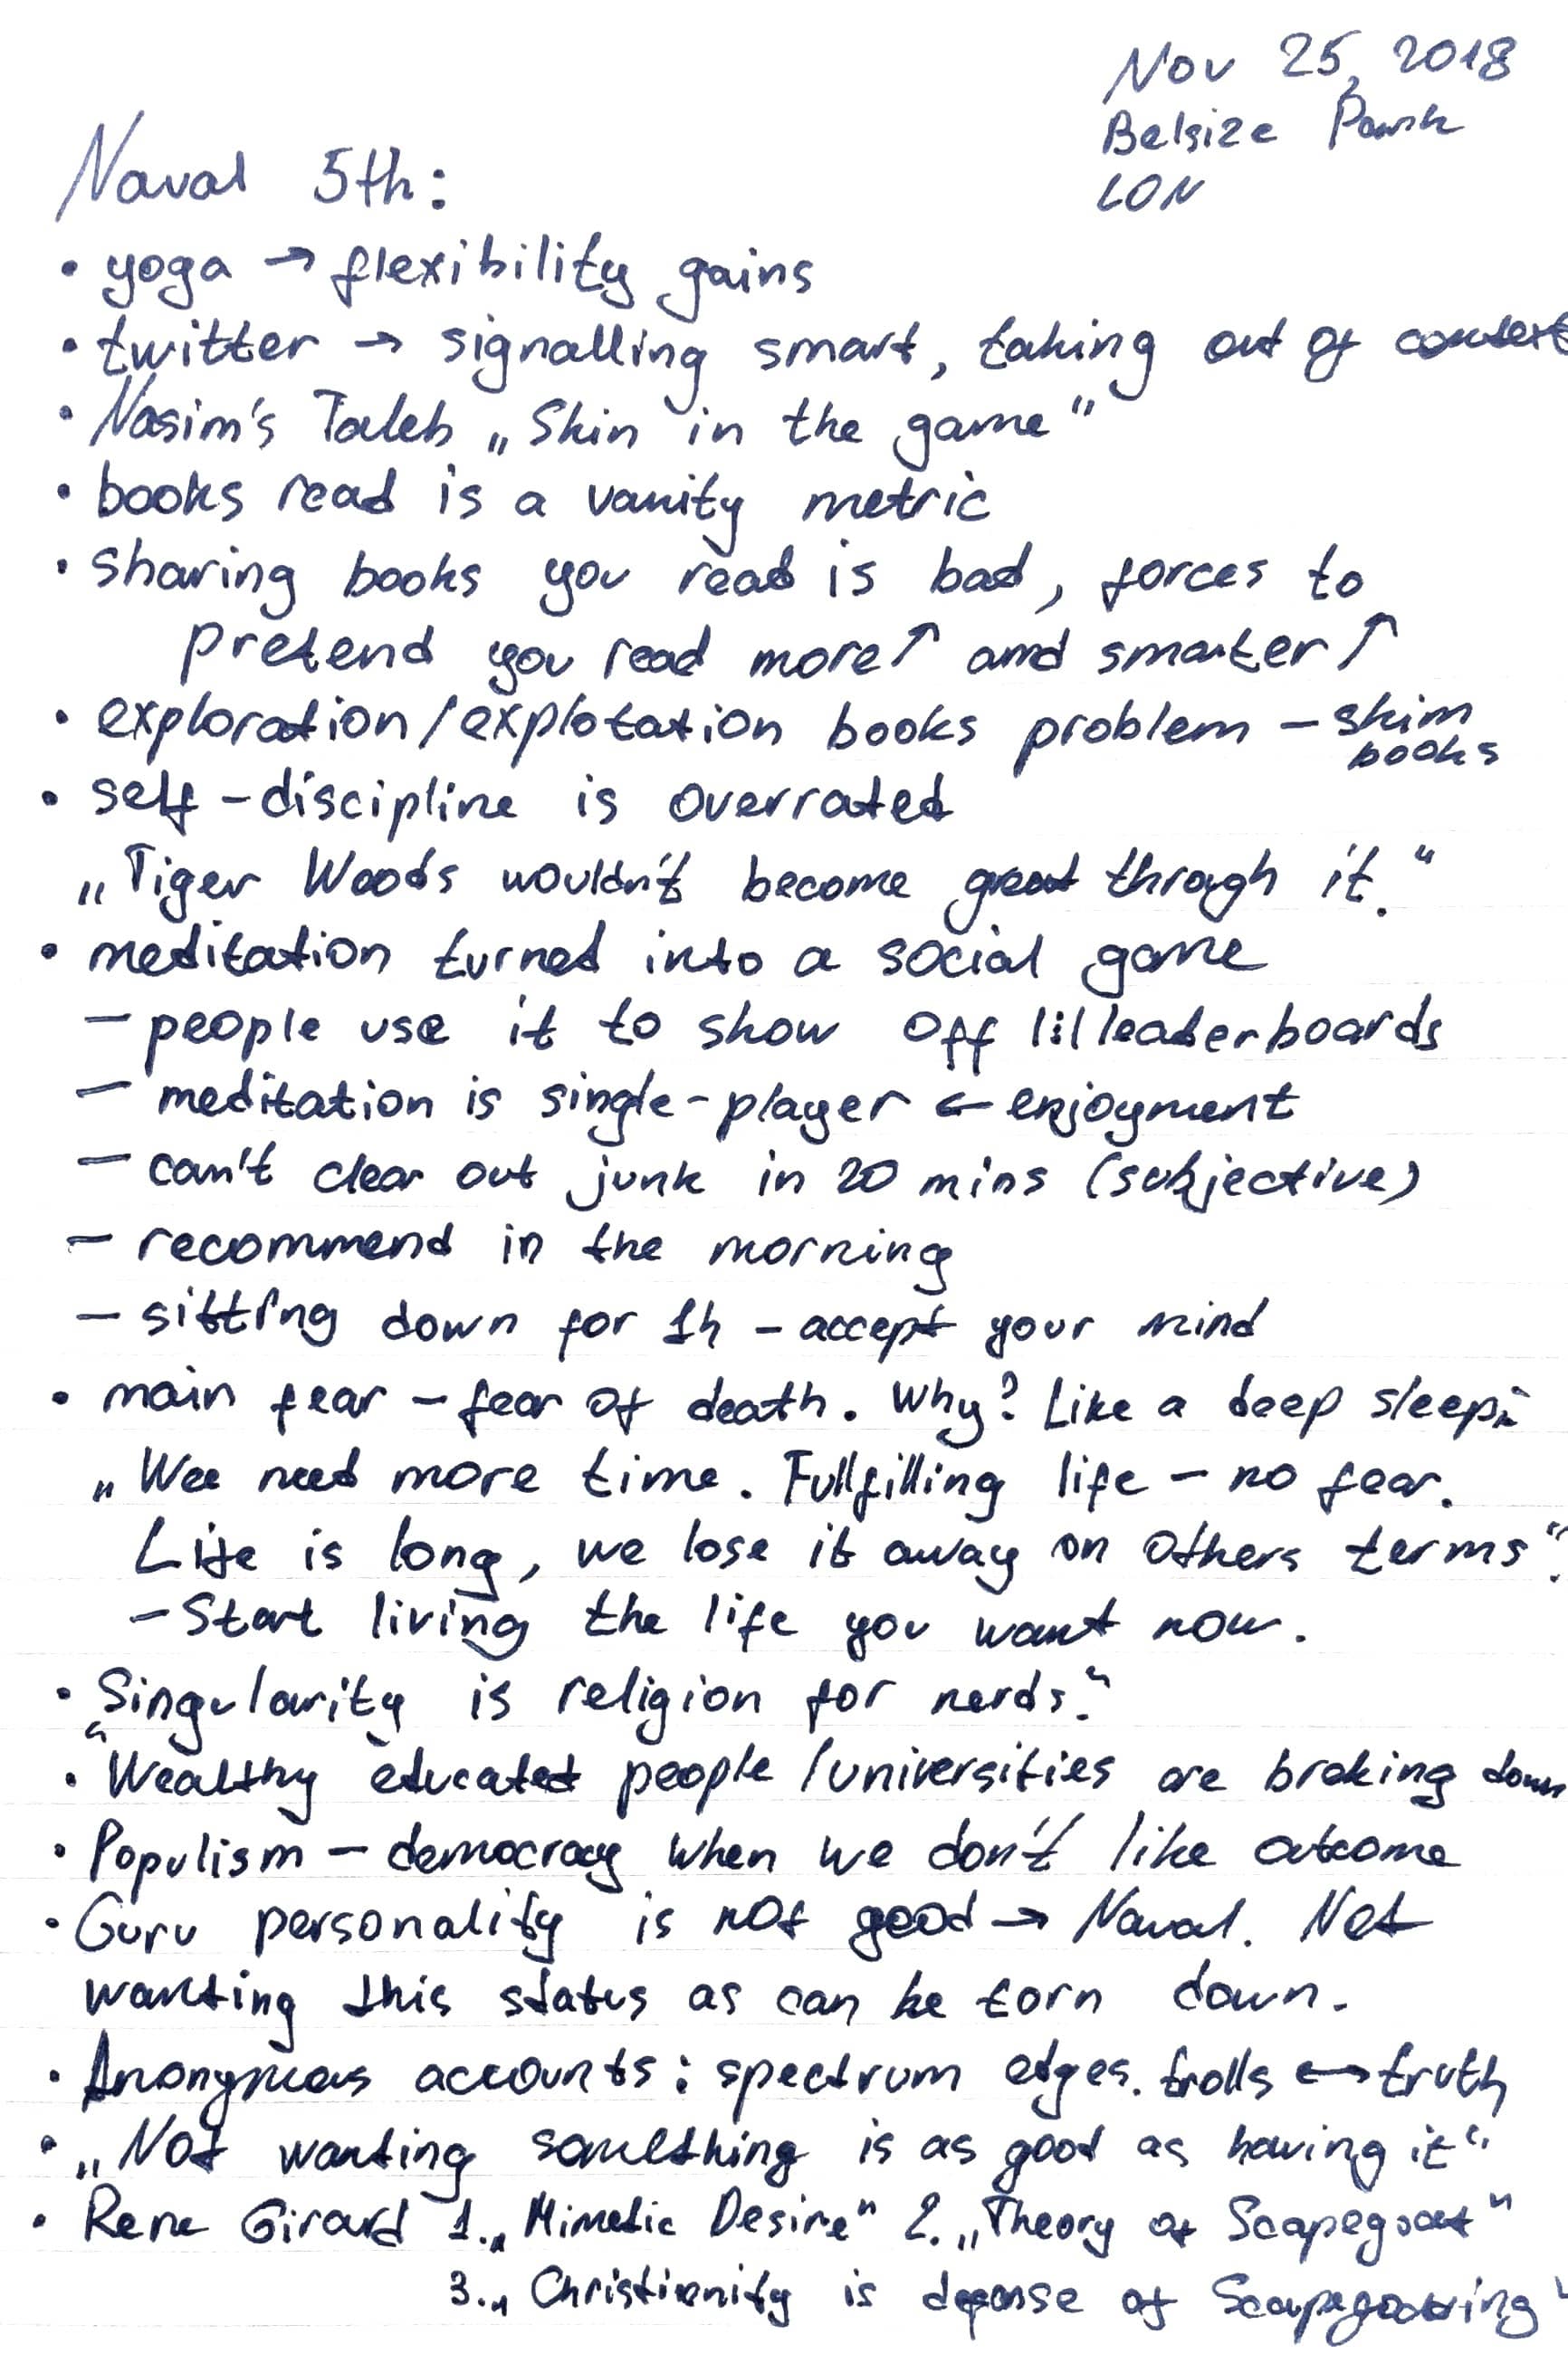 Nov 25, 2018
Belsize Park
LON
Naval 5th:
• yoga → flexibility gains
• twitter → signalling smart, taking out of context
• Nasim's Taleb „Skin in the game"
• books read is a vanity metric
• sharing books you read is bad, forces to
pretend you read more↑ and smarter↑
• exploration/explotation books problem – skim
books
• self-discipline is overrated
„Tiger Woods wouldn't become great throgh it."
• meditation turned into a social game
– people use it to show off lil leaderboards
– meditation is single-player ← enjoyment
– can't clear out junk in 20 mins (subjective)
– recommend in the morning
– sitting down for 1h – accept your mind
• main fear – fear of death. Why? Like a deep sleep
„Wee need more time. Fullfilling life – no fear.
Life is long, we lose it away on others terms".
– Start living the life you want now.
• „Singularity is religion for nerds."
• Wealthy educated people/universities are braking down
• Populism – democracy when we don't like outcome
• Guru personality is not good → Naval. Not
wanting this status as can be torn down.
• Anonymous accounts: spectrum edges. trolls ↔ truth
• „Not wanting something is as good as having it"
• Rene Girard 1. „Mimetic Desire" 2. „Theory of Scapegoat"
3. „Christianity is defense of Scapegoating"